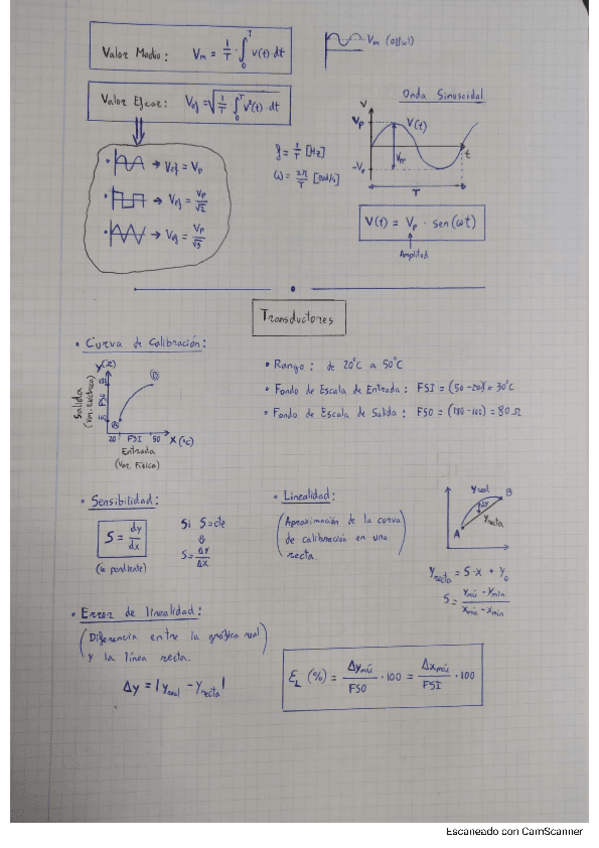 Valor Medio: Vm = 1/T · ∫₀ᵀ v(t) · dt
Vm (offset)
Valor Eficaz: Vef = √(1/T ∫₀ᵀ v²(t) · dt)
Onda Sinusoidal
V
Vp
V(t)
VPP
-Vp
t
T
→ Vef = Vp
→ Vef = Vp/√2
→ Vef = Vp/√3
f = 1/T [Hz]
ω = 2π/T [rad/s]
V(t) = Vp · sen(ωt)
Amplitud
Transductores
• Curva de Calibración:
Y(Ω)
Salida
(Var. Eléctrica)
FSO
A
B
20 FSI 50 X(°C)
Entrada
(Var. Física)
• Rango: de 20°C a 50°C
• Fondo de Escala de Entrada: FSI = (50-20) = 30°C
• Fondo de Escala de Salida: FSO = (180-100) = 80 Ω
• Sensibilidad:
S = dy/dx
(la pendiente)
Si S=cte
S = Δy/Δx
• Linealidad:
(Aproximación de la curva
de calibración en una
recta.)
yreal
B
Δy
yrecta
A
yrecta = S·x + y₀
S = (ymáx - ymín)/(xmáx - xmín)
• Error de linealidad:
(Diferencia entre la gráfica real
y la línea recta.)
Δy = |yreal - yrecta|
εL (%) = Δymáx/FSO · 100 = Δxmáx/FSI · 100
Escaneado con CamScanner